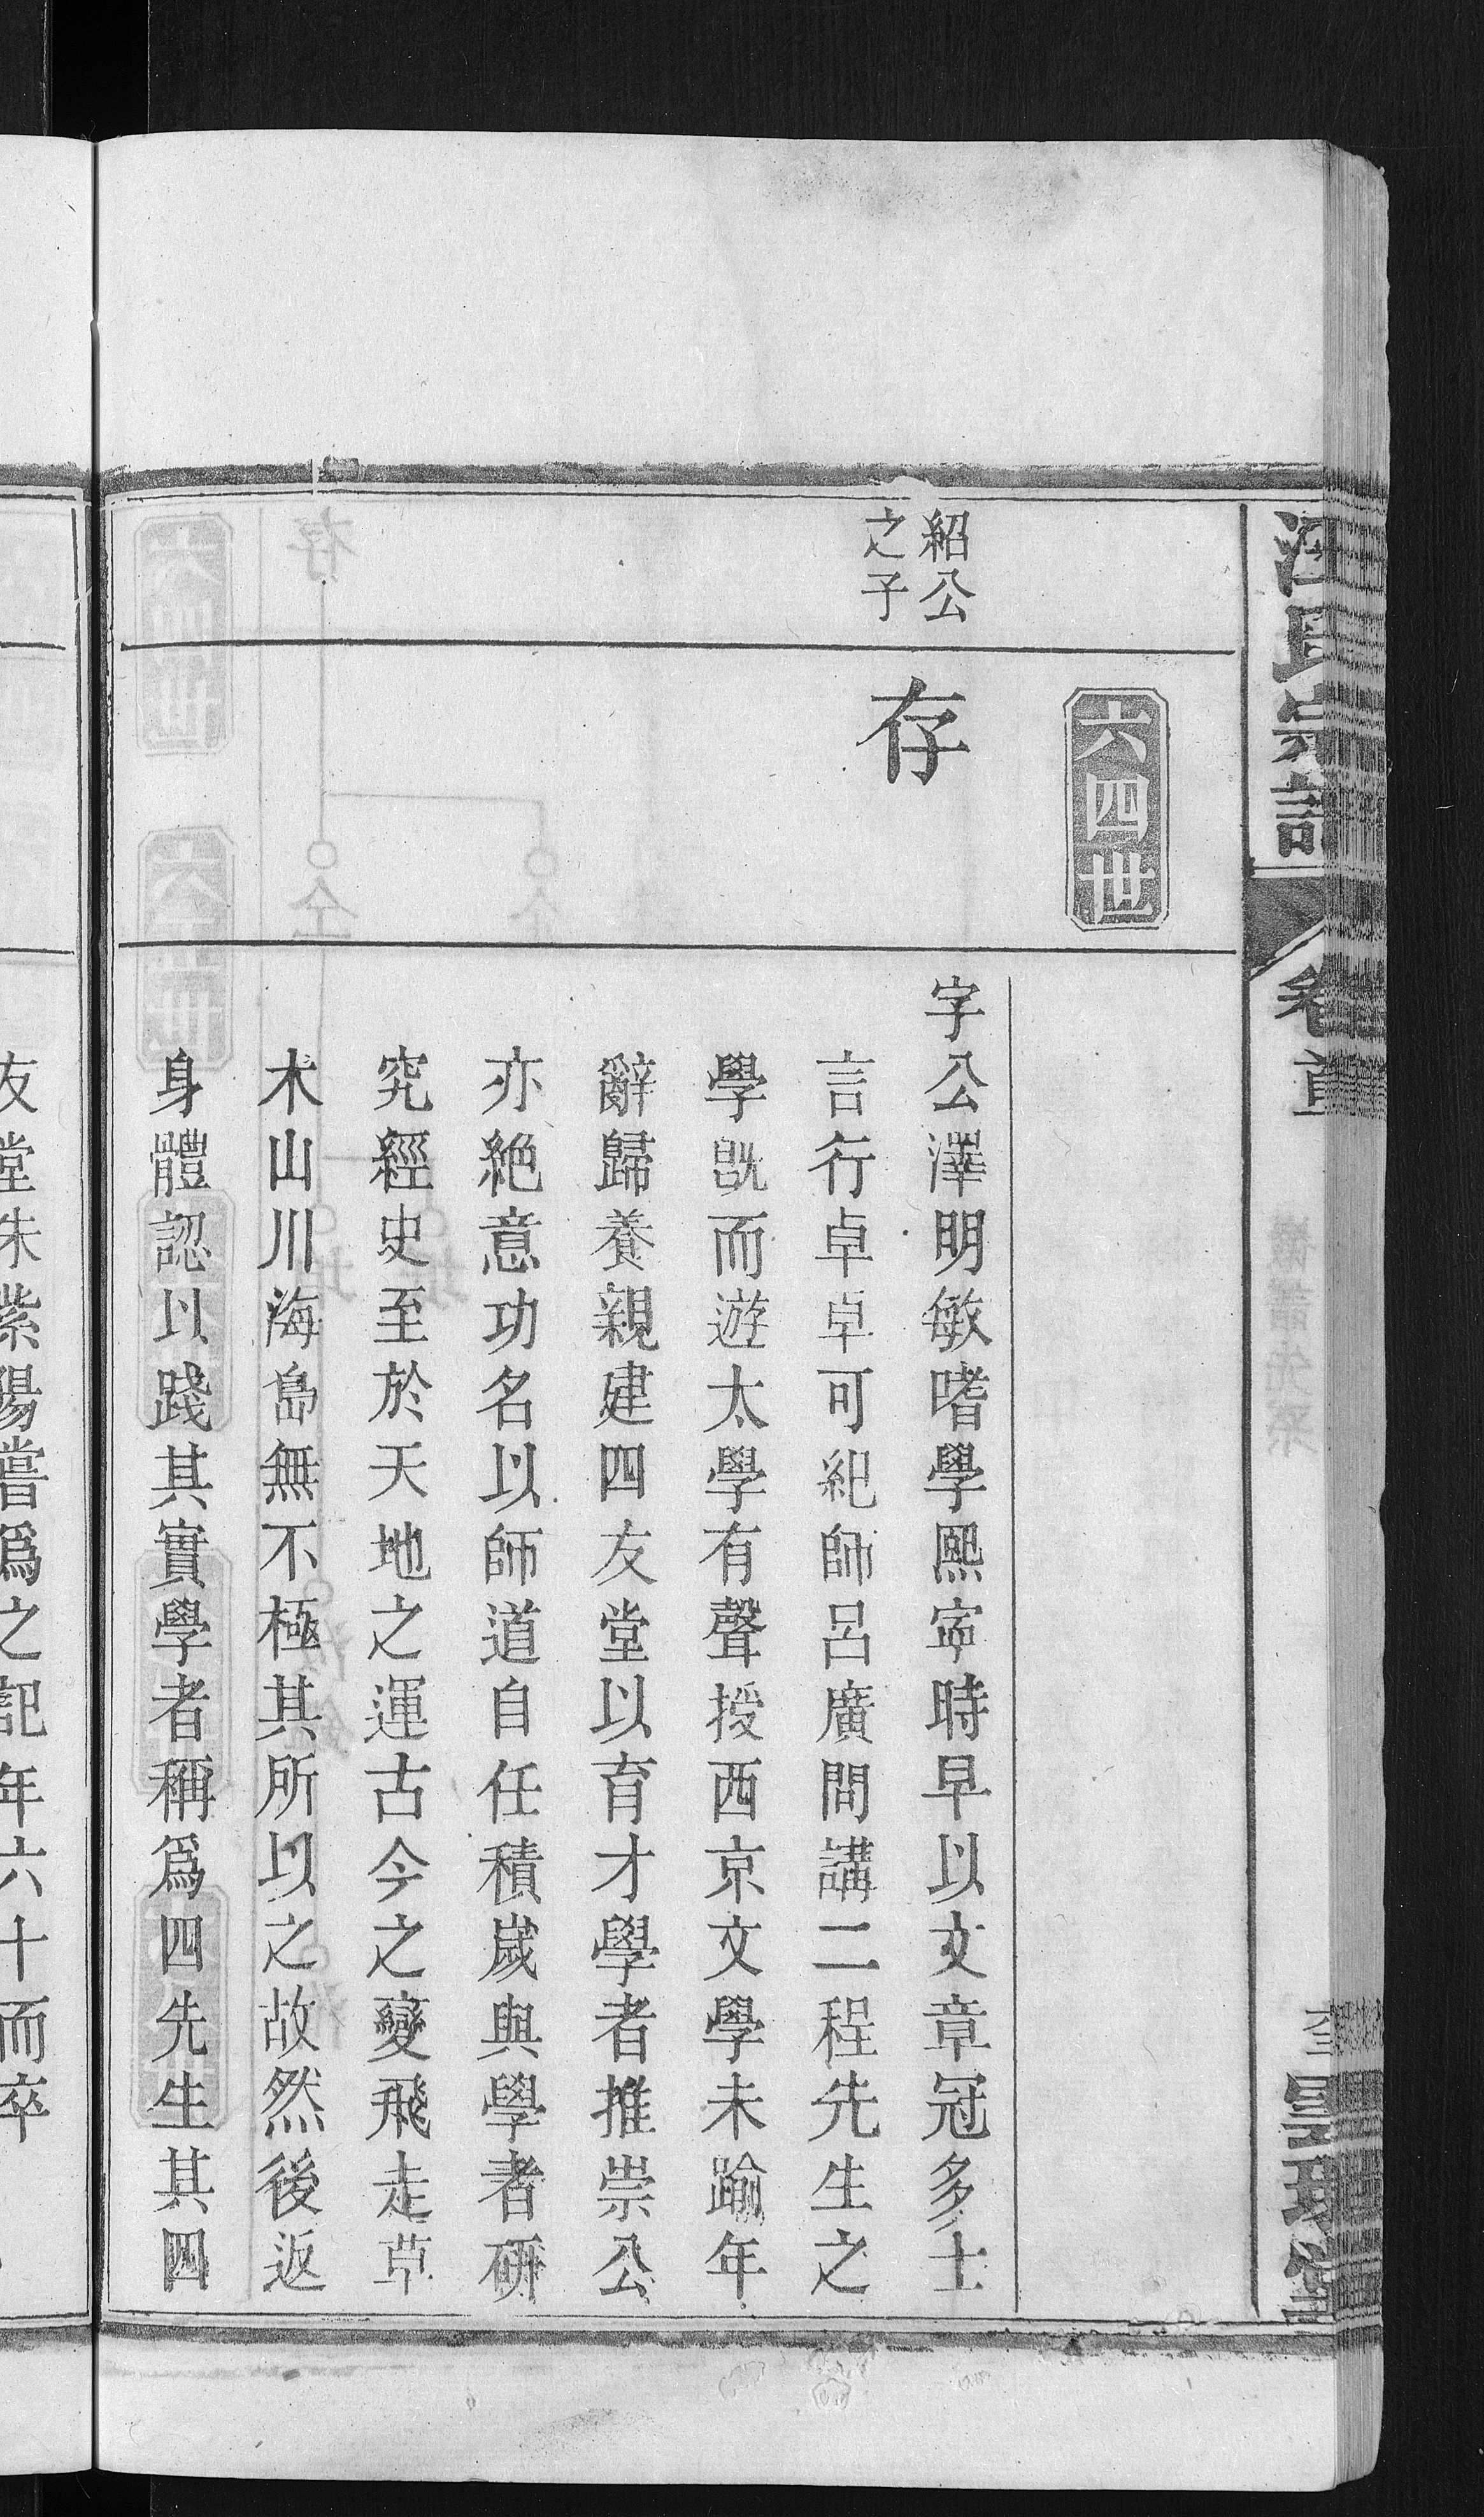 汪氏宗譜
卷首
六四世
紹公
之子
存
字公澤明敏嗜學熙寧時早以文章冠多士
言行卓卓可紀師呂廣問講二程先生之
學旣而遊太學有聲授西京文學未踰年
辭歸養親建四友堂以育才學者推崇公
亦絶意功名以師道自任積歲與學者硏
究經史至於天地之運古今之變飛走草
木山川海島無不極其所以之故然後返
身體認以踐其實學者稱爲四先生其四
友堂朱紫陽嘗爲之記年六十而卒